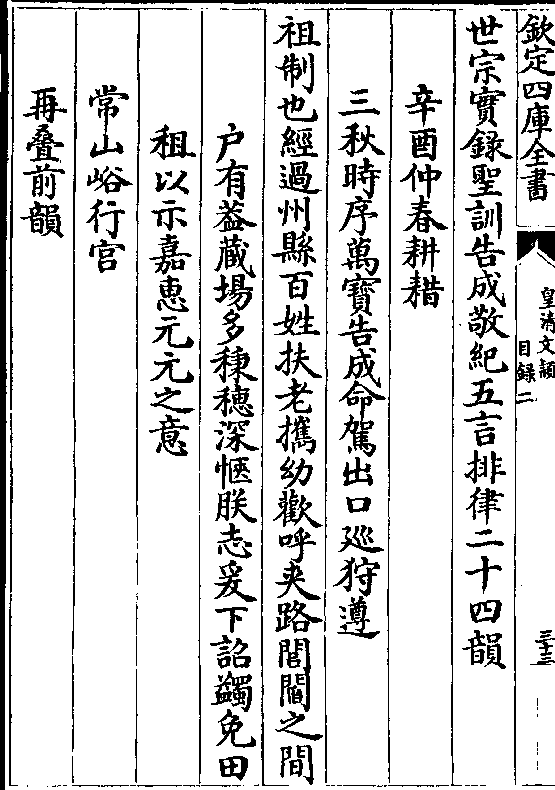 欽定四庫全書
皇清文頴
目録二
三十三
世宗實録聖訓告成敬紀五言排律二十四韻
辛酉仲春耕耤
三秋時序萬寶告成命駕出口廵狩遵
祖制也經過州縣百姓扶老攜幼歡呼夾路閭閻之間
户有葢藏場多稑穗深愜朕志爰下詔蠲免田
租以示嘉惠元元之意
常山峪行宫
再叠前韻